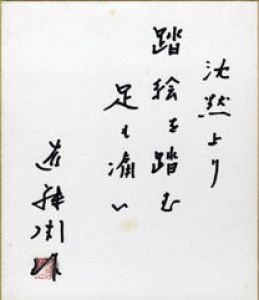 沈黙より
踏絵を踏む
足も痛い
遠藤周作